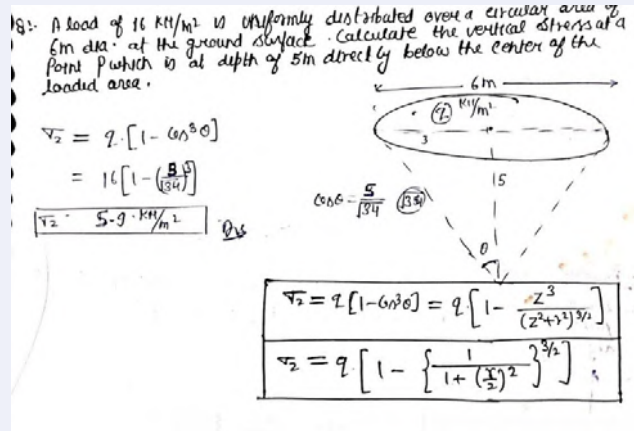 Q8:- A load of 16 KN/m² is uniformly distributed over a circular area of
6m dia. at the ground surface. Calculate the vertical stress at a
Point P which is at depth of 5m directly below the center of the
loaded area.
6m
q KN/m²
3
σz = q.[1-cos³θ]
= 16[1-(5/√34)³]
σz = 5.9 KN/m²
Ans
cosθ = 5/√34
√34
15
θ
σz = q[1-cos³θ] = q[1- z³/(z²+r²)^3/2]
σz = q[1-{1/1+(r/z)²}^3/2]